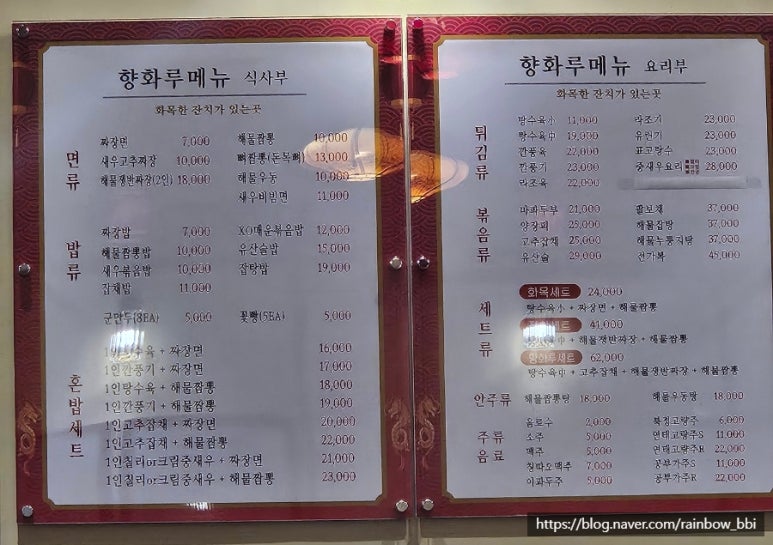 향화루메뉴 식사부
화목한 잔치가 있는곳
면류
짜장면 7,000
새우고추짜장 10,000
해물쟁반짜장(2인) 18,000
해물짬뽕 10,000
뼈짬뽕(돈목뼈) 13,000
해물우동 10,000
새우비빔면 11,000
밥류
짜장밥 7,000
해물짬뽕밥 10,000
새우볶음밥 10,000
잡채밥 11,000
XO매운볶음밥 12,000
유산슬밥 15,000
잡탕밥 19,000
군만두(8EA) 5,000
꽃빵(5EA) 5,000
혼밥세트
1인탕수육 + 짜장면 16,000
1인깐풍기 + 짜장면 17,000
1인탕수육 + 해물짬뽕 18,000
1인깐풍기 + 해물짬뽕 19,000
1인고추잡채 + 짜장면 20,000
1인고추잡채 + 해물짬뽕 22,000
1인칠리or크림중새우 + 짜장면 21,000
1인칠리or크림중새우 + 해물짬뽕 23,000
향화루메뉴 요리부
화목한 잔치가 있는곳
튀김류
탕수육小 11,000
탕수육中 19,000
깐풍육 22,000
깐풍기 23,000
라조육 22,000
라조기 23,000
유린기 23,000
표고탕수 23,000
중새우요리 28,000
볶음류
마파두부 21,000
양장피 25,000
고추잡채 25,000
유산슬 29,000
팔보채 37,000
해물잡탕 37,000
해물누룽지탕 37,000
전가복 45,000
세트류
화목세트 24,000
탕수육小 + 짜장면 + 해물짬뽕
세트 41,000
탕수육中 + 해물쟁반짜장 + 해물짬뽕
향화루세트 62,000
탕수육中 + 고추잡채 + 해물쟁반짜장 + 해물짬뽕
안주류
해물짬뽕탕 18,000
해물우동탕 18,000
주류
음료
음료수 2,000
소주 5,000
맥주 5,000
칭따오맥주 7,000
이과두주 5,000
북경고량주 6,000
연태고량주S 11,000
연태고량주R 22,000
공부가주S 11,000
공부가주R 22,000
https://blog.naver.com/rainbow_bbi